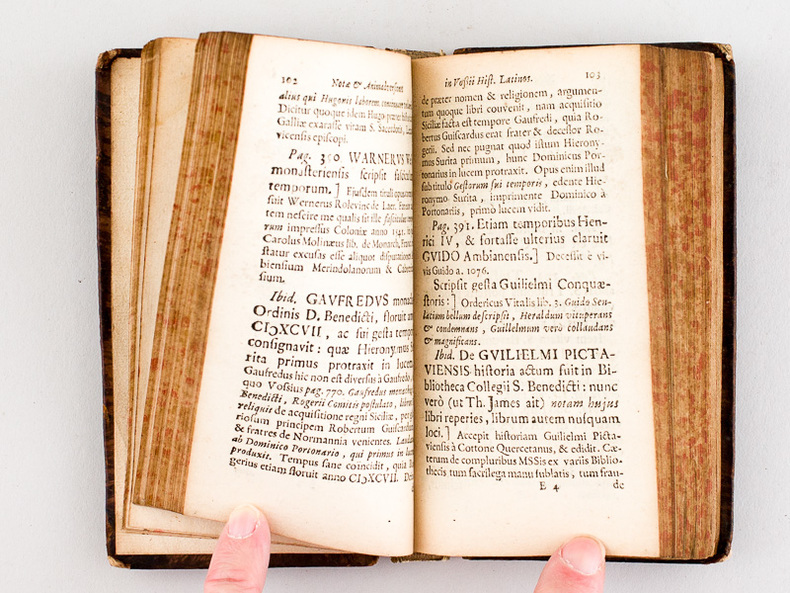 102 Notæ & Animadversiones
altius qui Hugonis laborem
Dicitur quoque idem Hugo
Galliæ exarasse vitam S. Sacerdotis,
vicensis episcopi.
Pag. WARNERVS
monasteriensis scripsit
temporum. ]
fuit Wernerus Rolevinc de Laer.
tem nescire me qualis sit ille fasciculus
rum impressus Coloniæ anno
Carolus Molinæus lib. de Monarch.
statur excusus esse aliquot
biensium Merindolanorum &
sium.
Ibid. GAUFREDVS
Ordinis D. Benedicti, floruit
CIƆXCVII, ac sui gesta
consignavit: quæ Hieronymus
rita primus protraxit in
Gaufredus hic non est diversus à Gaufredo,
quo Vossius pag. 770. Gaufredus
Benedicti, Rogerii Comitis postulato,
reliquit de acquisitione regni Siciliæ,
riosum principem Robertum
& fratres de Normannia venientes.
ab Dominico Portonario, qui primus in
produxit. Tempus sane coincidit, quia
gerius etiam floruit anno CIƆXCVII.
in Vossii Hist. Latinos. 103
de præter nomen & religionem, argumen-
tum quoque libri convenit, nam acquisitio
Siciliæ facta est tempore Gaufredi, quia Ro-
bertus Guiscardus erat frater & decessor Ro-
gerii. Sed nec pugnat quod istum Hierony-
mus Surita primum, hunc Dominicus Por-
tonarius in lucem protraxit. Opus enim illud
sub titulo Gestorum sui temporis, edente Hie-
ronymo Surita, imprimente Dominico à
Portonariis, primò lucem vidit.
Pag. 391. Etiam temporibus Hen-
rici IV, & fortasse ulterius claruit
GUIDO Ambianensis.] Decessit è vi-
vis Guido a. 1076.
Scripsit gesta Guilielmi Conquæ-
storis:] Ordericus Vitalis lib. 3. Guido Sen-
latium bellum descripsit, Heraldum vituperans
& condemnans, Guillelmum verò collaudans
& magnificans.
Ibid. De GVILIELMI PICTA-
VIENSIS historia actum fuit in Bi-
bliotheca Collegii S. Benedicti: nunc
verò (ut Th. James ait) notam hujus
libri reperies, librum autem nusquam
loci.] Accepit historiam Guilielmi Picta-
viensis à Cottone Quercetanus, & edidit. Cæ-
terum de compluribus MSSis ex variis Biblio-
thecis tum sacrilega manu sublatis, tum frau-
E 4 de